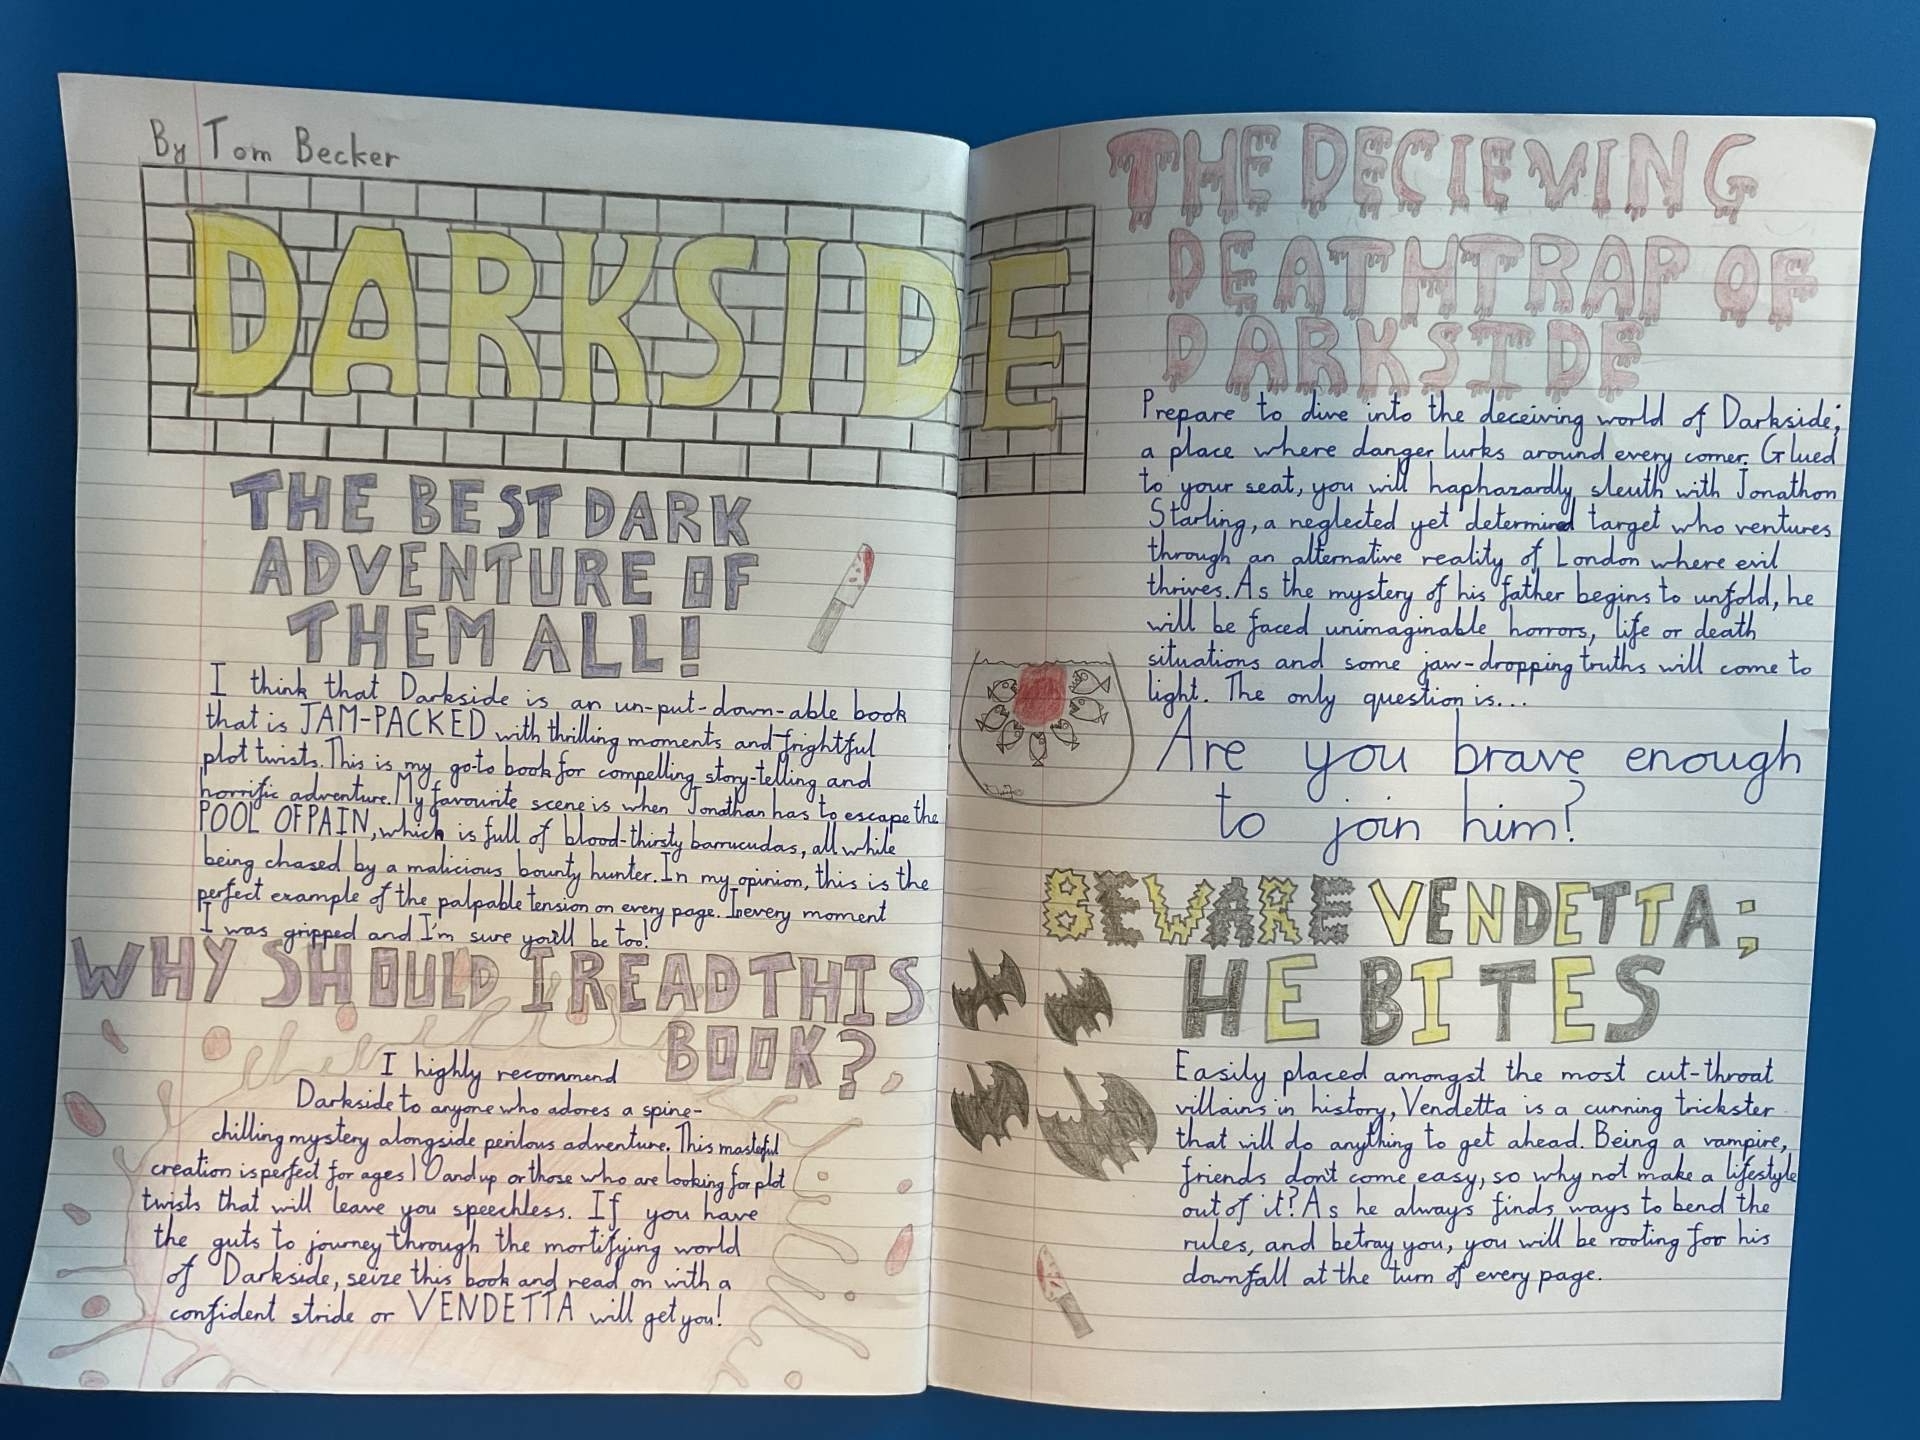 By Tom Becker
DARKSIDE
THE BEST DARK
ADVENTURE OF
THEM ALL!
I think that Darkside is an un-put-down-able book
that is JAM-PACKED with thrilling moments and frightful
plot twists. This is my go-to book for compelling story-telling and
horrific adventure. My favourite scene is when Jonathan has to escape the
POOL OF PAIN, which is full of blood-thirsty barrucudas, all while
being chased by a malicious bounty hunter. In my opinion, this is the
perfect example of the palpable tension on every page. In every moment
I was gripped and I'm sure you'll be too!
WHY SHOULD I READ THIS
BOOK?
I highly recommend
Darkside to anyone who adores a spine-
chilling mystery alongside perilous adventure. This masterful
creation is perfect for ages 10 and up or those who are looking for plot
twists that will leave you speechless. If you have
the guts to journey through the mortifying world
of Darkside, seize this book and read on with a
confident stride or VENDETTA will get you!
THE DECIEVING
DEATHTRAP OF
DARKSIDE
Prepare to dive into the deceiving world of Darkside;
a place where danger lurks around every corner. Glued
to your seat, you will haphazardly sleuth with Jonathon
Starling, a neglected yet determined target who ventures
through an alternative reality of London where evil
thrives. As the mystery of his father begins to unfold, he
will be faced unimaginable horrors, life or death
situations and some jaw-dropping truths will come to
light. The only question is...
Are you brave enough
to join him?
BEWARE VENDETTA;
HE BITES
Easily placed amongst the most cut-throat
villains in history, Vendetta is a cunning trickster
that will do anything to get ahead. Being a vampire,
friends don't come easy, so why not make a lifestyle
out of it? As he always finds ways to bend the
rules, and betray you, you will be rooting for his
downfall at the turn of every page.